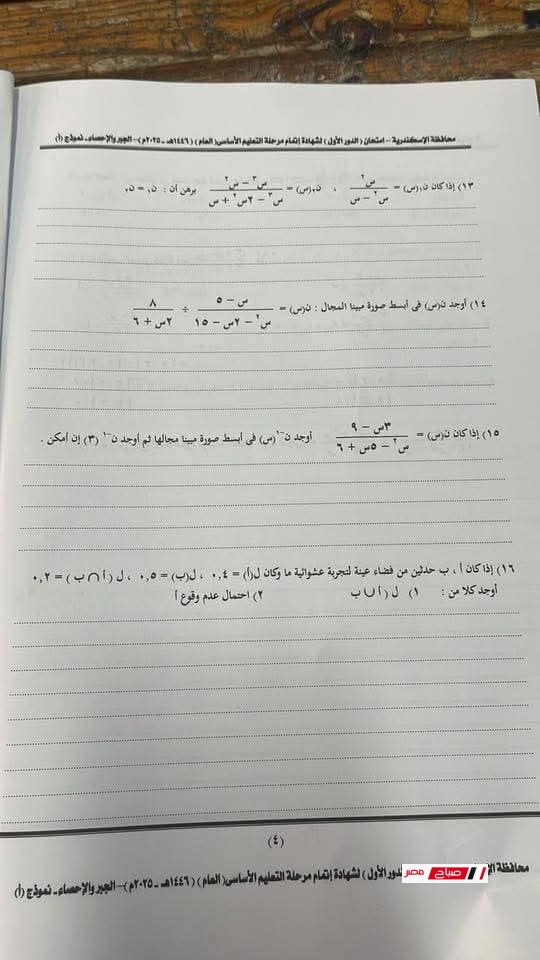 محافظة الإسكندرية – امتحان ( الدور الأول ) لشهادة إتمام مرحلة التعليم الأساسى( العام ) ( ١٤٤٦هـ ـ ٢٠٢٥م )– الجبر والإحصاء ـ نموذج (أ)
١٣) إذا كان ن₁(س) = س² / (س² − س) ، ن₂(س) = (س³ − س²) / (س³ − ٢س² + س) برهن أن : ن₁ = ن₂
١٤) أوجد ن(س) فى أبسط صورة مبينا المجال : ن(س) = (س − ٥) / (س² − ٢س − ١٥) ÷ ٨ / (٢س + ٦)
١٥) إذا كان ن(س) = (٣س − ٩) / (س² − ٥س + ٦) أوجد ن⁻¹(س) فى أبسط صورة مبينا مجالها ثم أوجد ن⁻¹ (٣) إن أمكن .
١٦) إذا كان أ ، ب حدثين من فضاء عينة لتجربة عشوائية ما وكان ل(أ) = ٠,٤ ، ل(ب) = ٠,٥ ، ل ( أ ∩ ب ) = ٠,٢
أوجد كلا من : ١) ل ( أ ∪ ب ٢) احتمال عدم وقوع أ
(٤)
محافظة الإس دور الأول ) لشهادة إتمام مرحلة التعليم الأساسى( العام ) ( ١٤٤٦هـ ـ ٢٠٢٥م )– الجبر والإحصاء ـ نموذج (أ)
صباح مصر